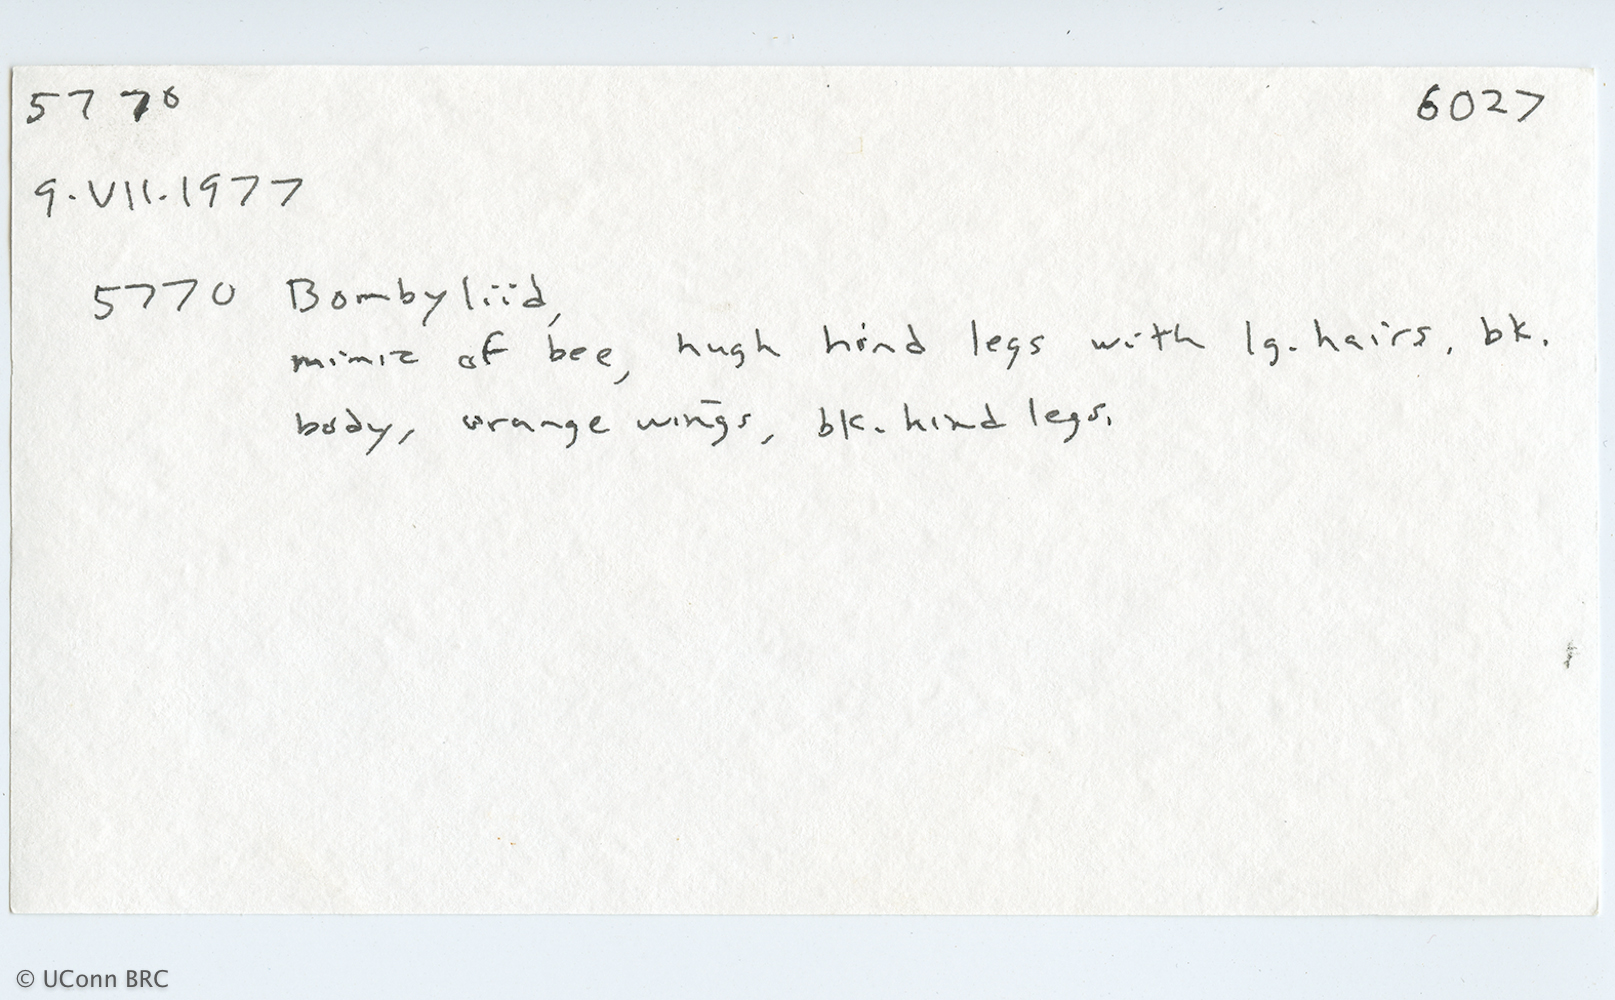 5770 6027
9.VII.1977
5770 Bombyliid,
mimic of bee, hugh hind legs with lg. hairs, bk.
body, orange wings, bk. hind legs.
© UConn BRC